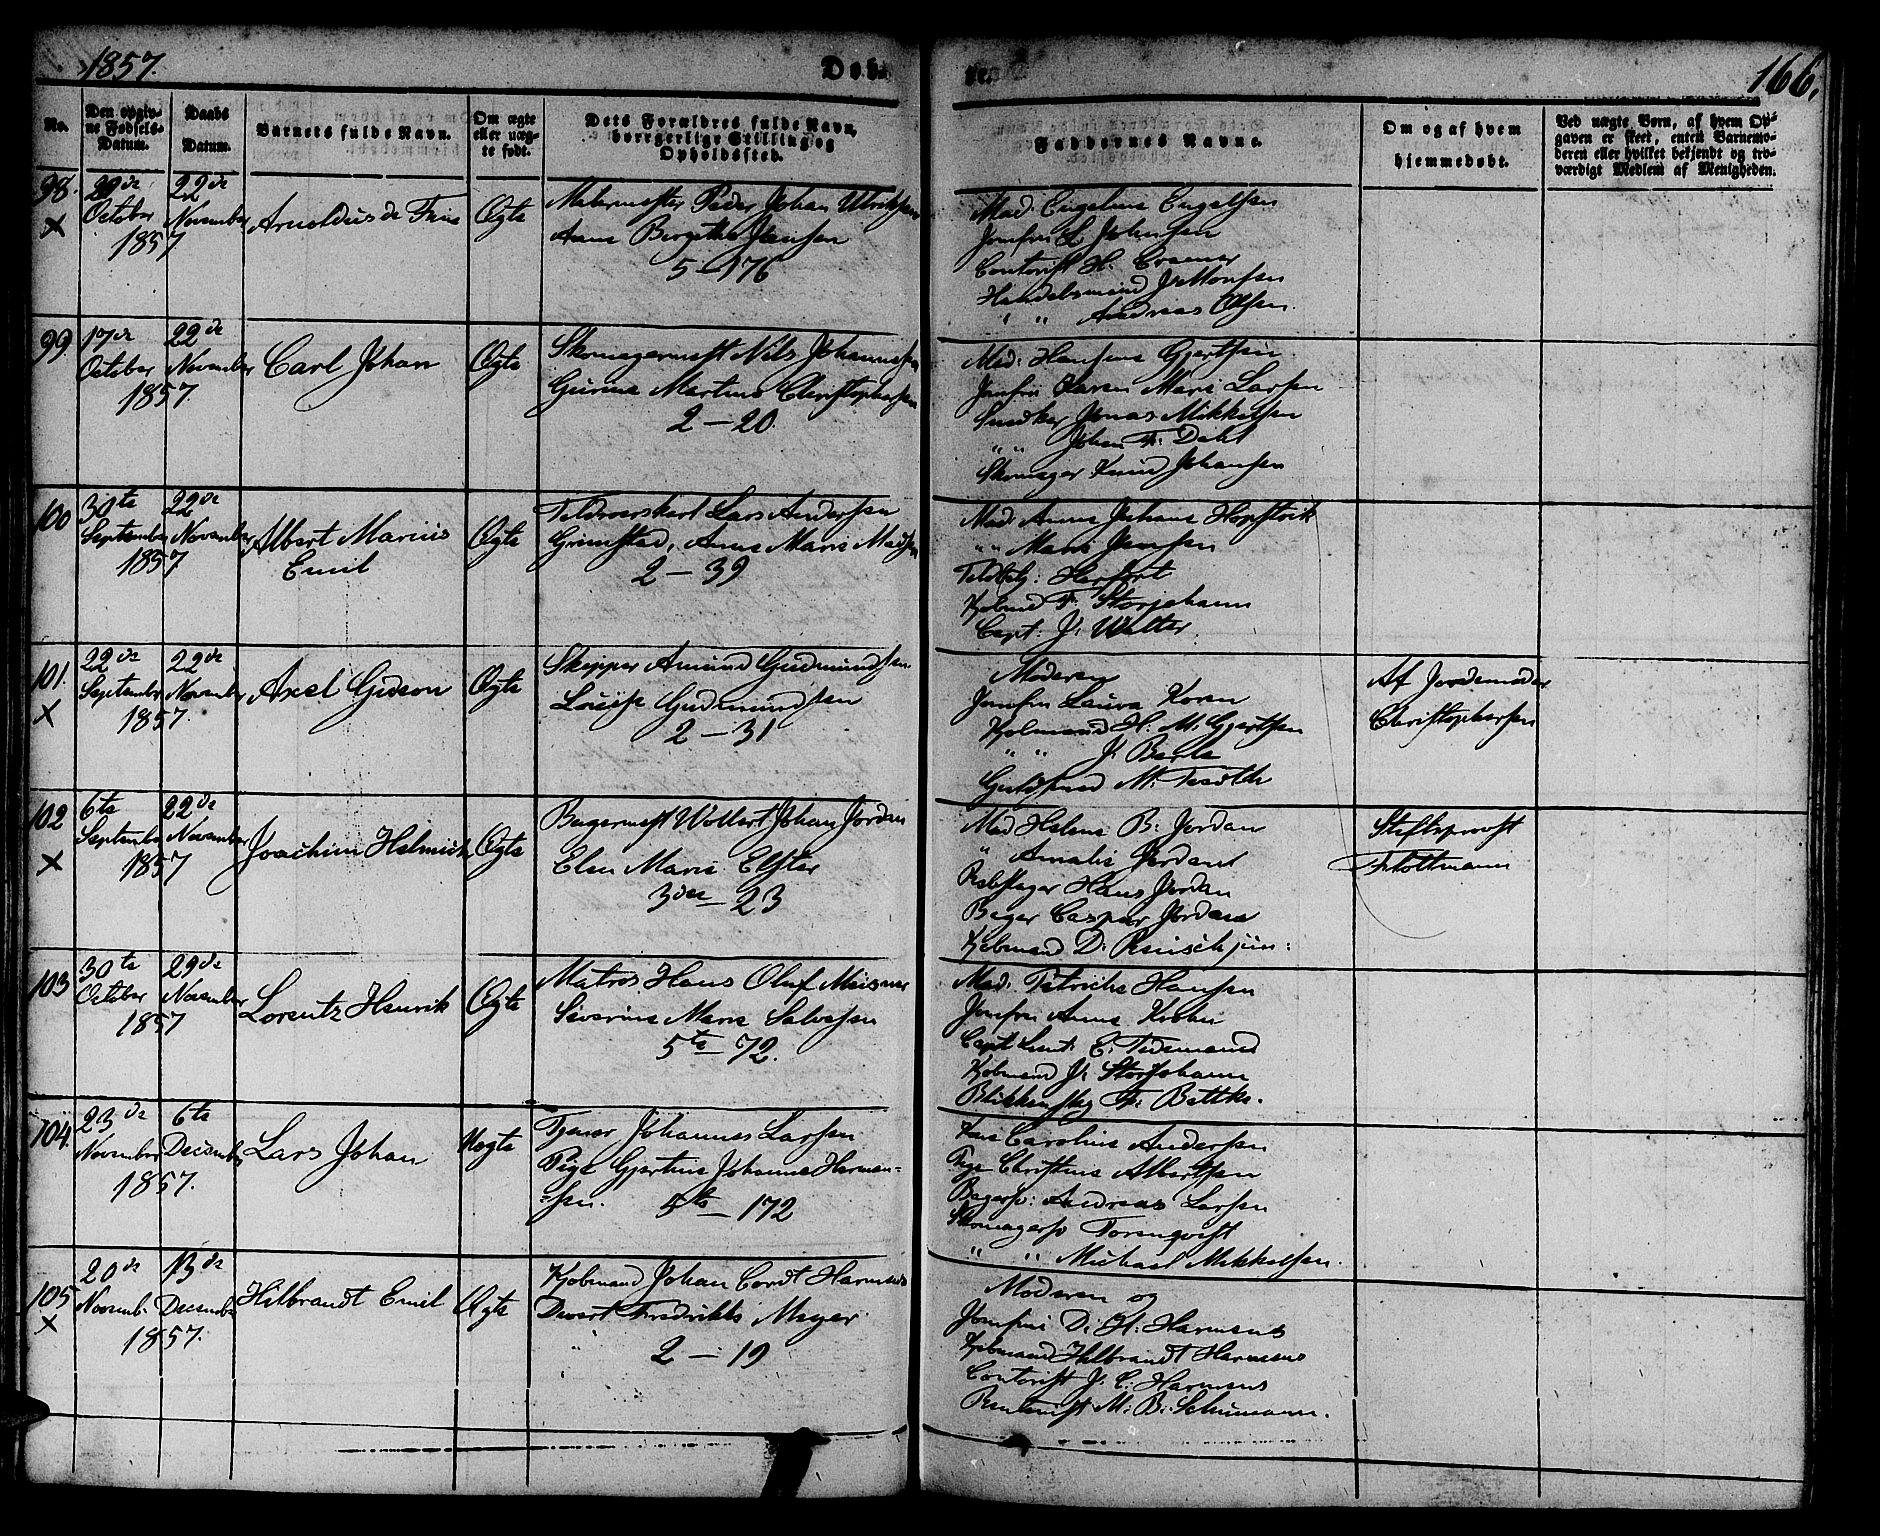 1857.
Døb
te.
166.
No.
Den opgiv-
ne Fødsels-
Datum.
Daabs
Datum.
Barnets fulde Navn.
Om ægte
eller uæg-
te født.
Dets Forældres fulde Navn,
borgerlige Stilling og
Opholdssted.
Faddernes Navne.
Om og af hvem
hjemmedøbt.
Ved uægte Børn, af hvem Op-
gaven er skeet, enten Barnemo-
deren eller hvilket bekjendt og tro-
værdigt Medlem af Menigheden.
98.
×
October
1857
22de
November
Arnoldus de Fine
Ægte
Malermester Peder Johan Ulriksen
Anne Birgitha Jansen
5 - 176
Mad: Engeline Engelsen
Jomfru L Johnsen
Contorist H:
Handelsmand J: Monsen
" " Andreas Olsen.
99
17de
October
1857.
22de
November
Carl Johan
Ægte
Skomagermest Nils Johannessen
Gurine Martine Christophersen
2 - 20.
Mad: Hansine Gjertsen
Jomfru Maren Marie Larsen
Snedker Jonas Mikkelsen
" " Johan F: Dahl
Skomager Knud Johansen
100
30te
September
1857
22de
November
Albert Marius
Emil
Ægte
Lars Andersen
Grimstad, Anne Marie Madsen
2 - 39
Mad: Anne Johane Hopstvik
" " Marie Jansen
Toldbetj: Herfort
Kjøbmd F: Storjohann
Capt: J: Walter.
101.
×
22de
September
1857.
22de
November
Axel Gideon
Ægte
Skipper Amund Gudmundsen
Louise Gudmundsen
2 - 31
Moderen
Jomfru Laura Koren
Kjøbmand H. M. Gjertsen
" " J:
Guldsmed M:
Af Jordemoder
Christophersen
102
×
6te
September
1857
22de
November
Joachim Helmich
Ægte
Bagermest Wollert Johan Jordan
Elen Marie Elster
3die - 23
Mad Helene B: Jordan
" Amalie Jordan
Rebslager Hans Jordan
Bager Casper Jordan
Kjøbmand D: Reusch jun:
Stiftsprovst
Flottmann
103
30te
October
1857
29de
November
Lorentz Henrik
Ægte
Matros Hans Oluf Meisner
Severine Marie Salvesen
5te - 72.
Mad: Petriche Hansen
Jomfru Anne Krohn
Capt Lieut: C: Tidemand
Kjøbmand J: Storjohann
Blikkenslg Fr: Bettke.
104.
23de
November
1857.
6te
December
Lars Johan
Uægte
Tjener Johannes Larsen
Pige Gjertine Johanne Harman-
=sen. 5te - 172
Caroline Andersen
Pige Christine Albertsen
Bagersv: Andreas Larsen
Skomagersv Torenqvist
" " Michael Mikkelsen.
105
×
20de
Novemb.
1857.
13de
December
Hilbrandt Emil
Ægte
Kjøbmand Johan Cordt Harmens
Divert Fredrikke Meyer
2 - 19
Moderen og
Jomfru D: H: Harmens
Kjøbmand Hilbrandt Harmens
Contorist J: C: Harmens
M: B: Schumann.